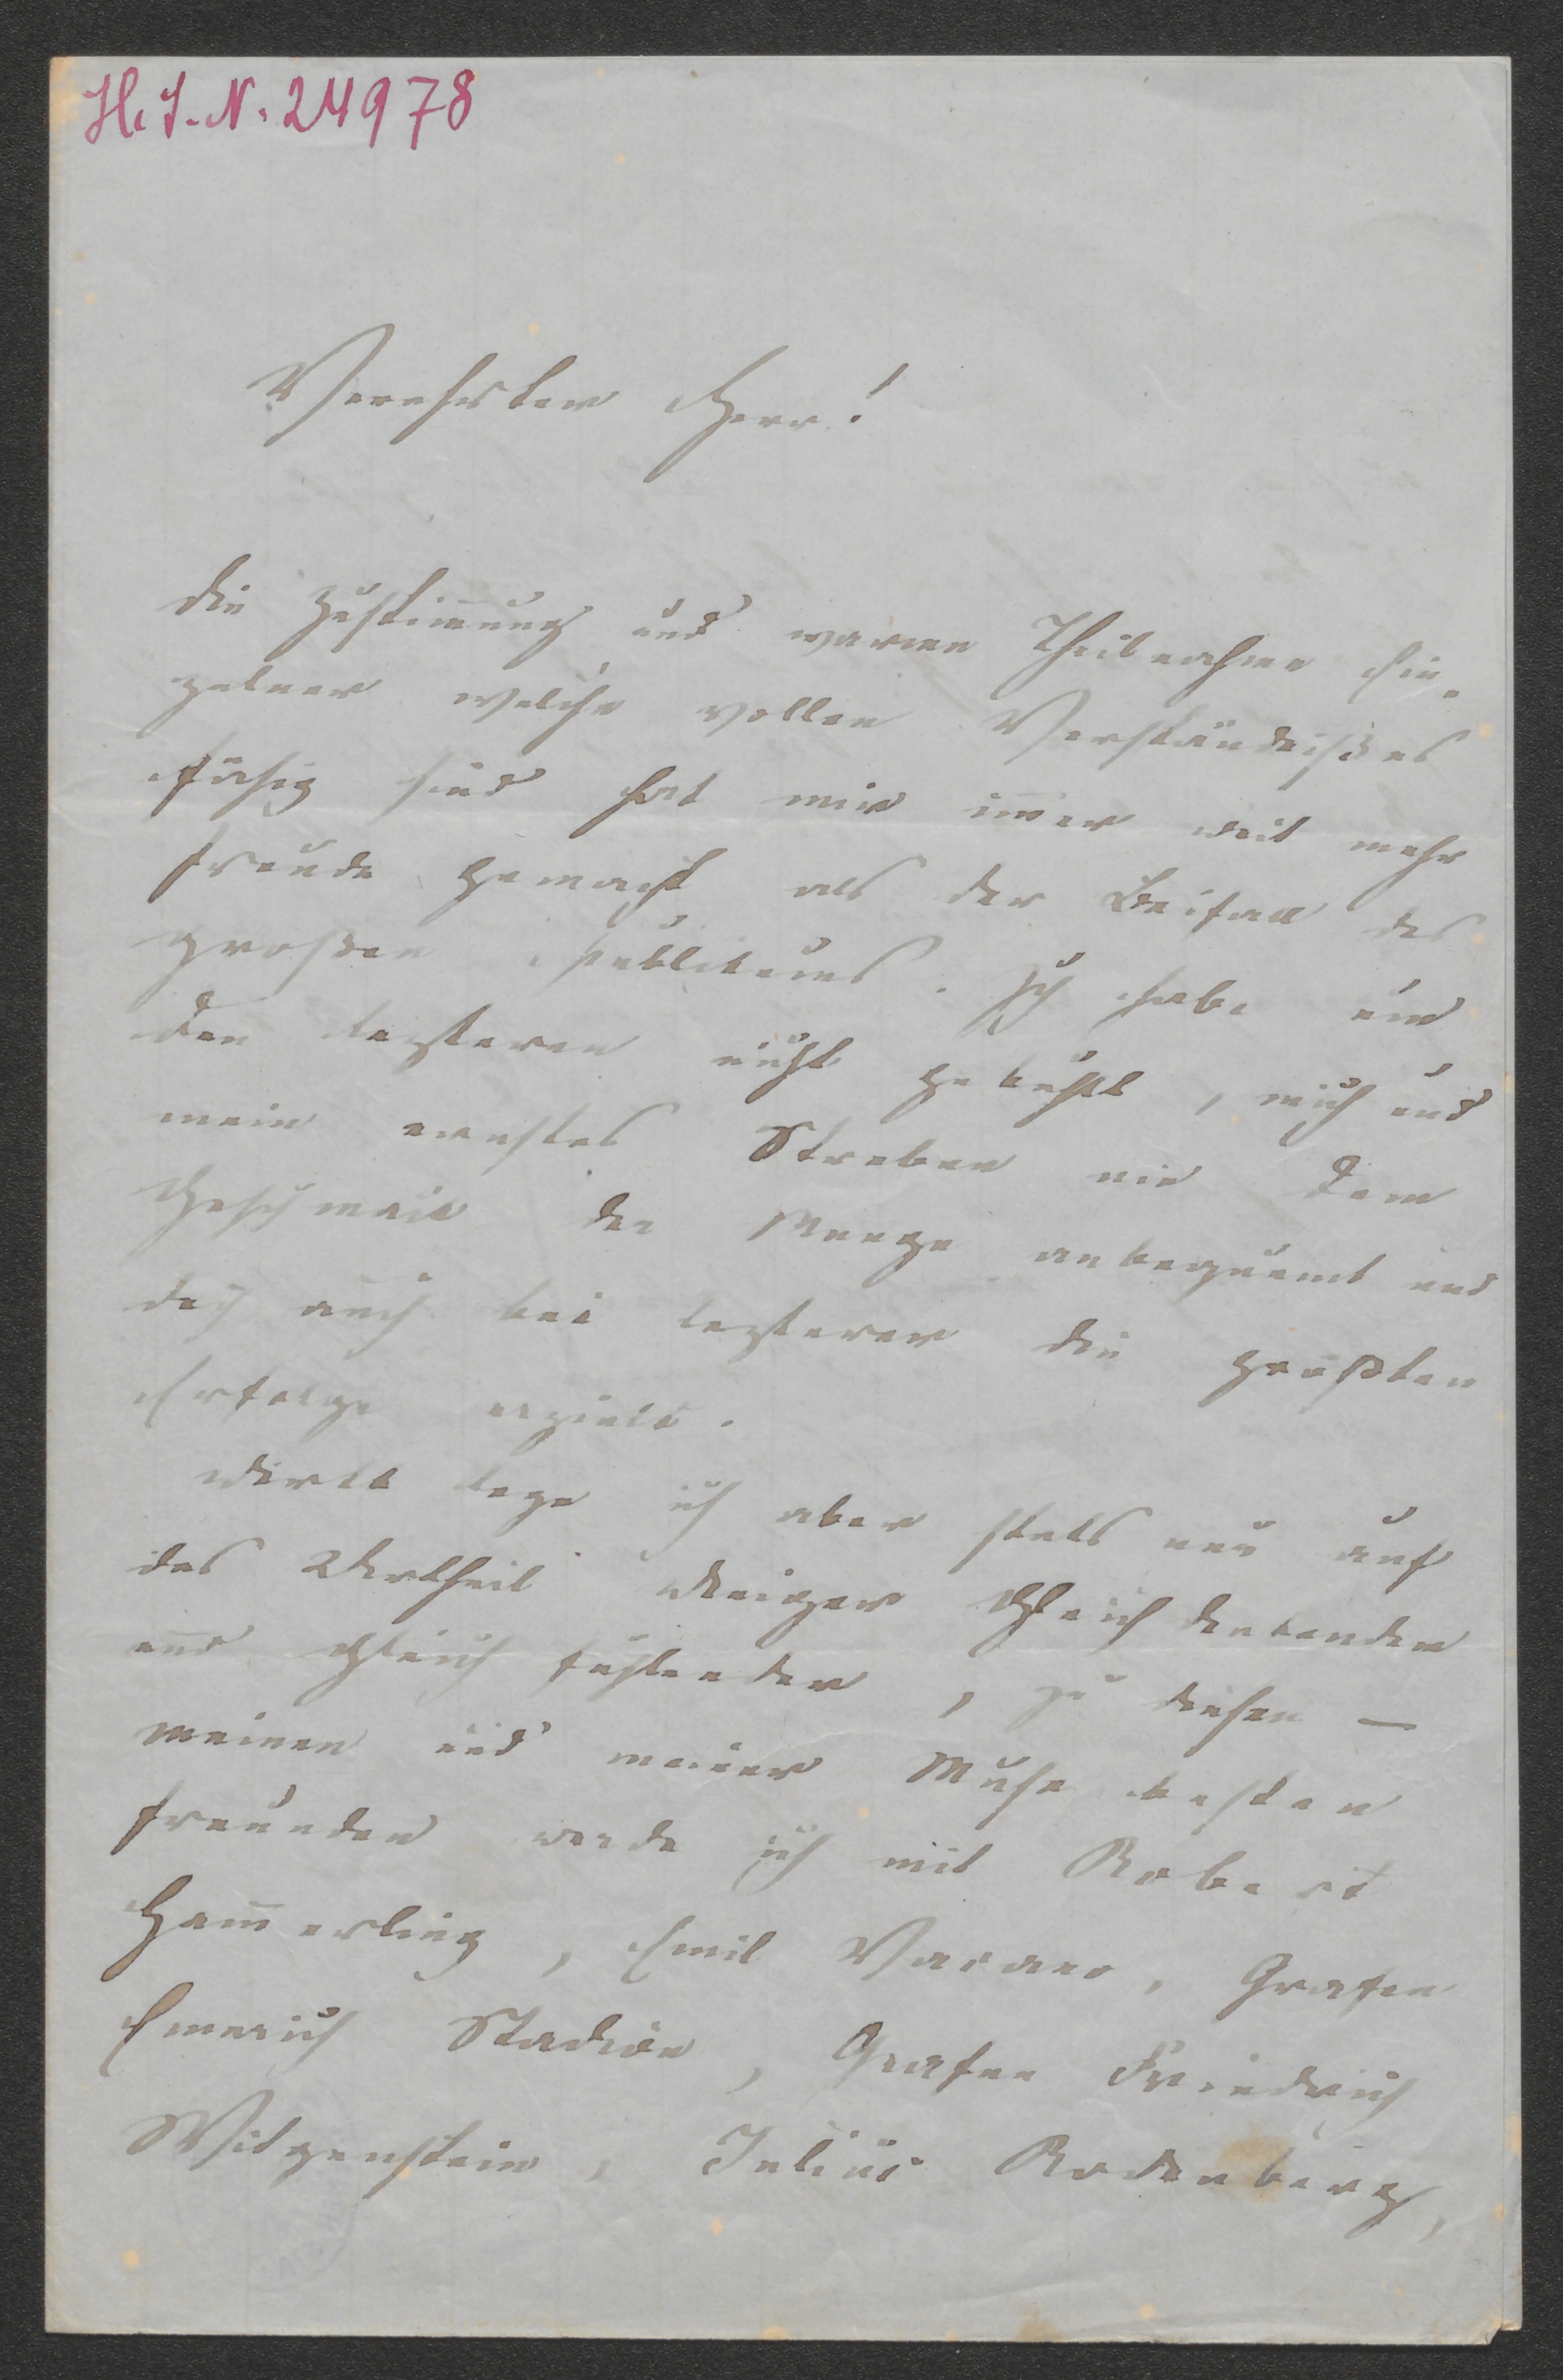 H.I.N. 24978
Verehrter Herr!
Die Zustimmung und warme Theilnahme Ein-
zelner welche vollen Verständnißes
fähig sind hat mir immer weit mehr
Freude gemacht als der Beifall des
großen Publikums. Ich habe um
den lezteren nicht gebuhlt, mich und
mein ernstes Streben nie dem
Geschmack der Menge anbequemt und
doch auch bei lezterer die größten
Erfolge erzielt.
Werth lege ich aber stets nur auf
das Urtheil Weniger Gleich denkender
und Gleich fühlender, zu diesen —
meinen und meiner Muse besten
Freunden werde ich mit Robert
Hammerling, Emil Vacano, Grafen
Emerich Stadion, Grafen Friedrich
Witgenstein, Julius Rodenberg,